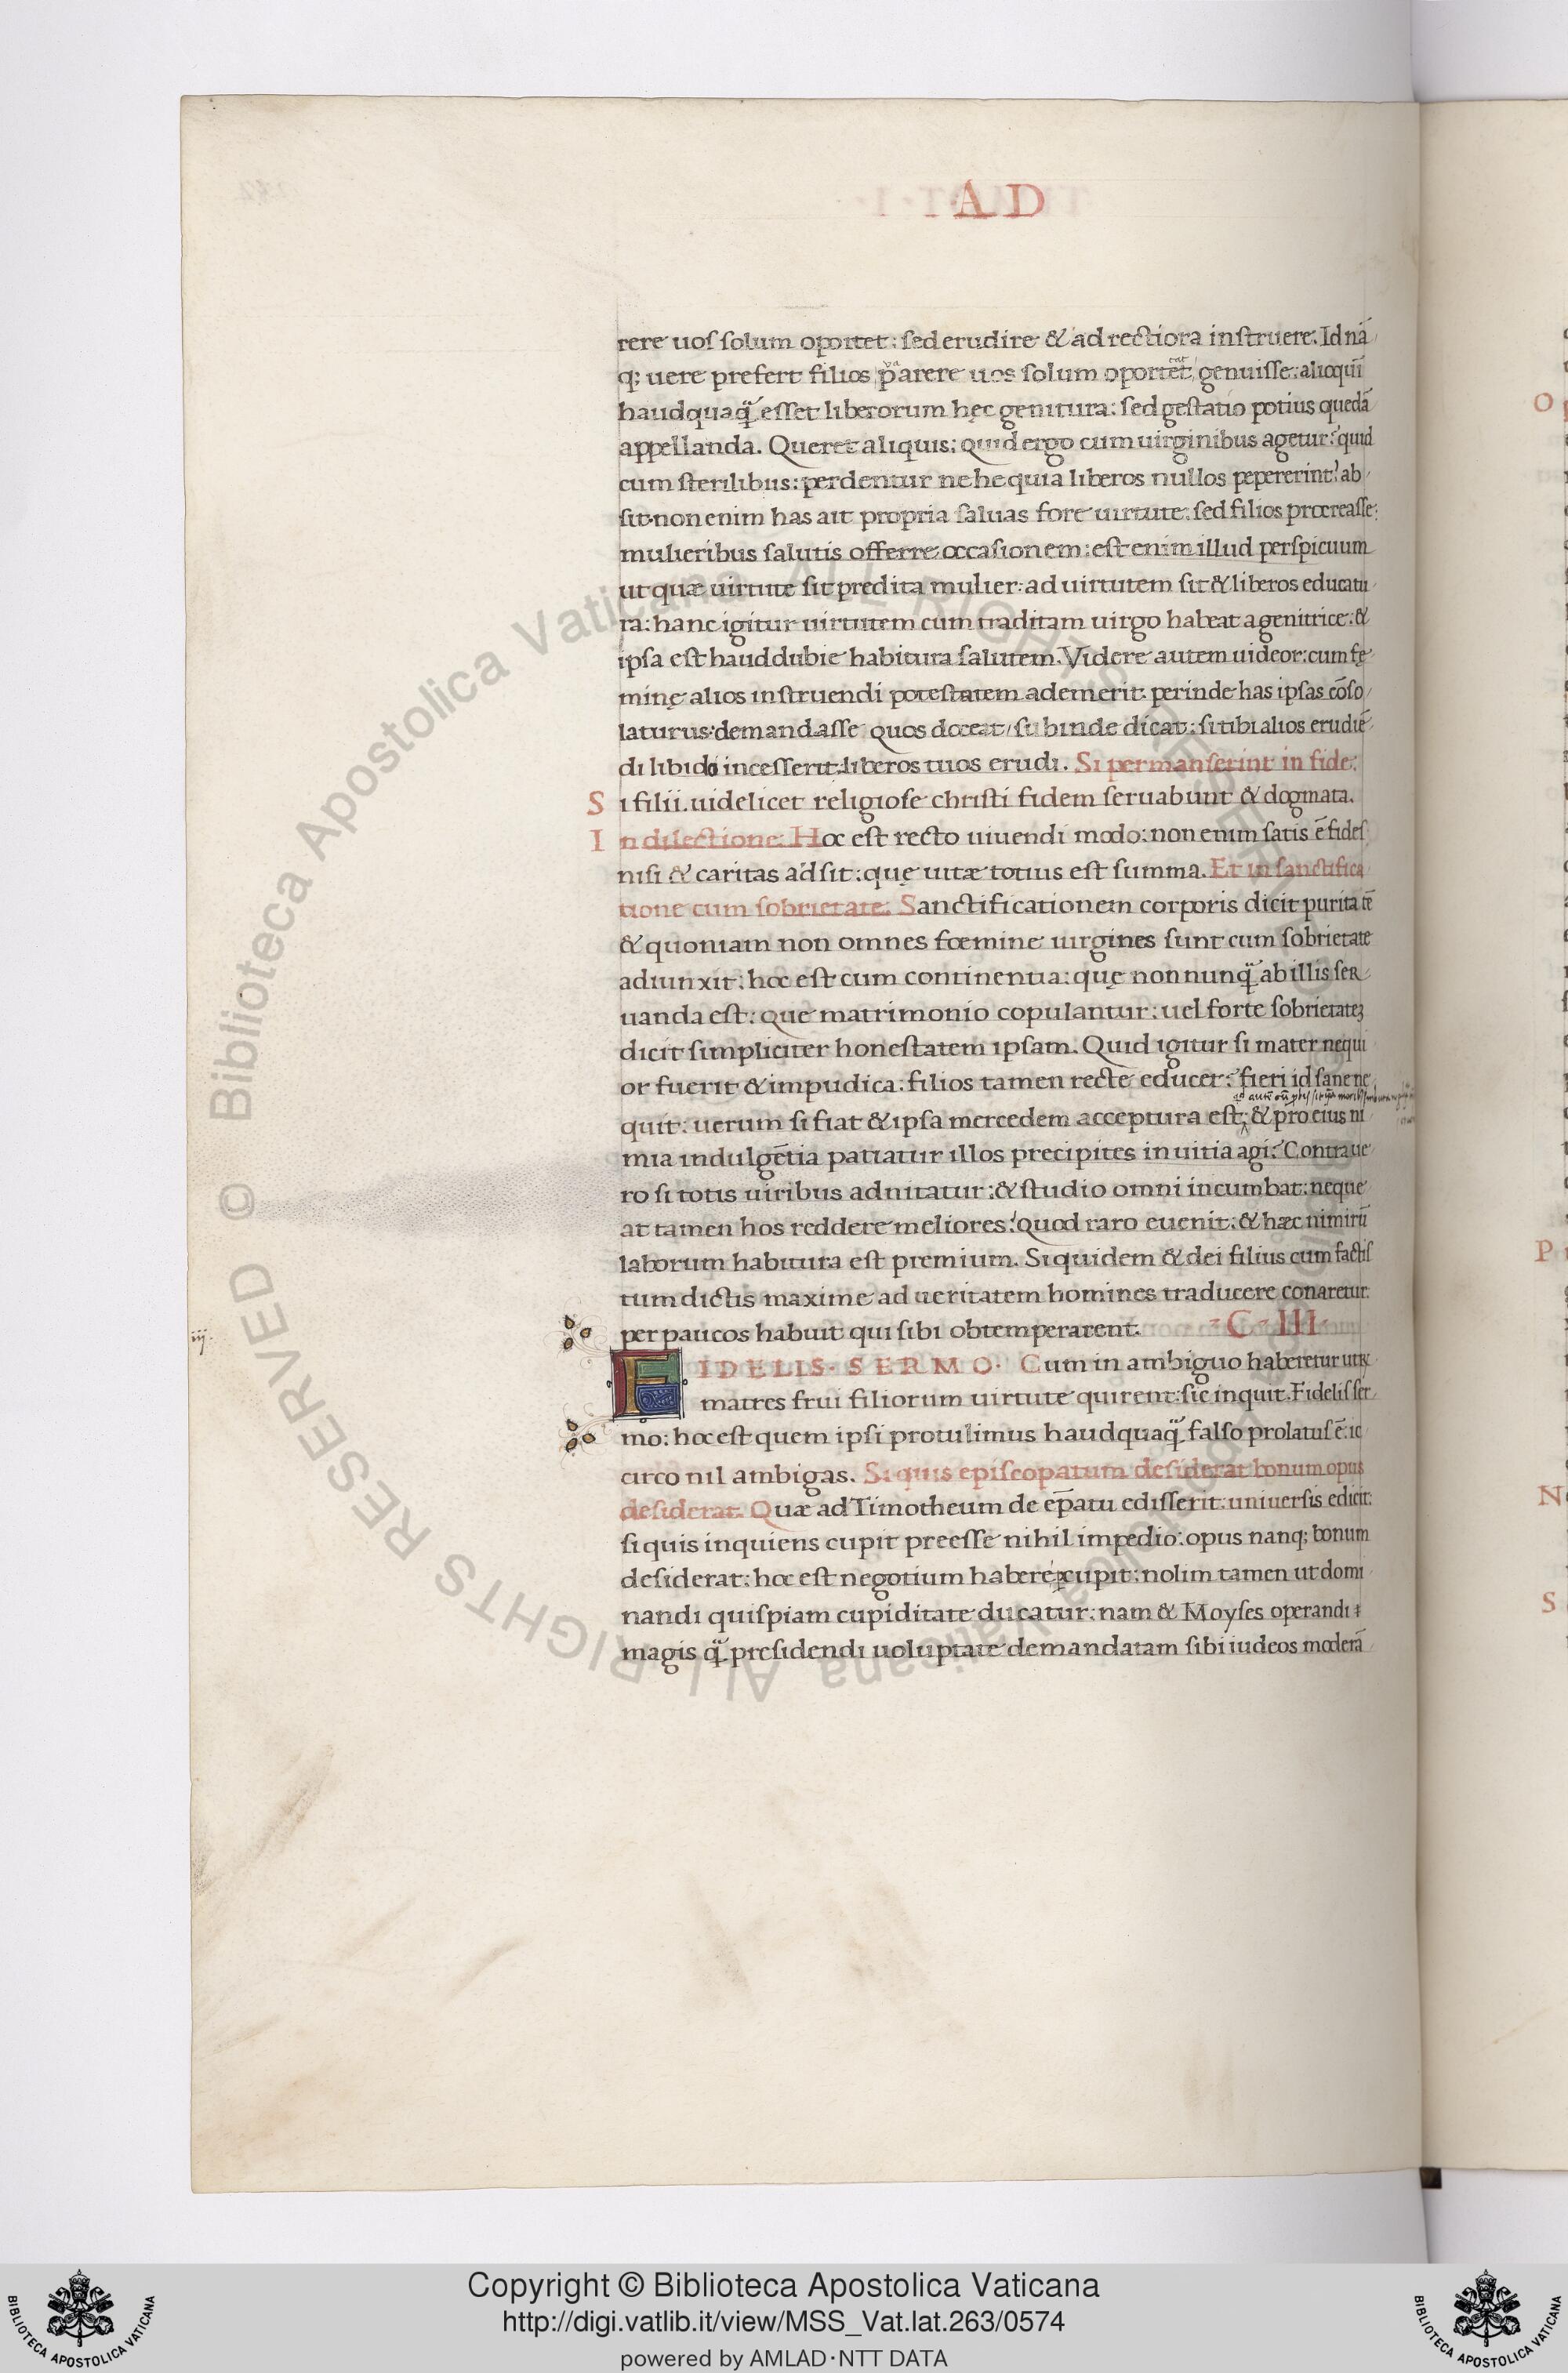 AD
rere uos solum oportet: sed erudire & ad rectiora instruere. Id nā
q; uere prefert filios parere uos solum oportet, genuisse: alioquī
haudquaq̃ esset liberorum hęc genitura: sed gestatio potius quedā
appellanda. Queret aliquis: quid ergo cum uirginibus agetur? quid
cum sterilibus: perdentur ne he quia liberos nullos pepererint? ab
sit. non enim has ait propria saluas fore uirtute: sed filios procreasse:
mulieribus salutis offerre occasionem: est enim illud perspicuum
ut quæ uirtute sit predita mulier: ad uirtutem sit & liberos educatu
ra: hanc igitur uirtutem cum traditam uirgo habeat a genitrice: &
ipsa est hauddubie habitura salutem. Videre autem uideor: cum fę
minę alios instruendi potestatem ademerit: perinde has ipsas cōso
laturus: demandasse quos doceat / subinde dicat: si tibi alios erudiē
di libido incesserit: liberos tuos erudi. Si permanserint in fide.
S i filii. uidelicet religiose christi fidem seruabunt & dogmata.
I n dilectione. Hoc est recto uiuendi modo: non enim satis ē fides
nisi & caritas adsit: quę uitæ totius est summa. Et in sanctifica
tione cum sobrietate. Sanctificationem corporis dicit puritatē
& quoniam non omnes fœmine uirgines sunt cum sobrietate
adiunxit: hoc est cum continentia: quę non nunq̃ ab illis ser
uanda est: que matrimonio copulantur: uel forte sobrietatez
dicit simpliciter honestatem ipsam. Quid igitur si mater nequi
or fuerit & impudica: filios tamen recte educet? fieri id sane ne
quit: uerum si fiat & ipsa mercedem acceptura est: & pro eius ni
mia indulgētia patiatur illos precipites in uitia agi? Contra ue
ro si totis uiribus adnitatur: & studio omni incumbat: neque
at tamen hos reddere meliores? quod raro euenit: & hæc nimirū
laborum habitura est premium. Siquidem & dei filius cum factis
tum dictis maxime ad ueritatem homines traducere conaretur:
per paucos habuit qui sibi obtemperarent. ·C·III·
iij.
FIDELIS· SERMO· Cum in ambiguo haberetur utrū
matres frui filiorum uirtute quirent: sic inquit. Fidelis ser
mo: hoc est quem ipsi protulimus haudquaq̃ falso prolatus ē: ic
circo nil ambigas. Si quis episcopatum desiderat bonum opus
desiderat. Quæ ad Timotheum de ep̄atu edisserit: uniuersis edicit:
si quis inquiens cupit preesse nihil impedio: opus nanq; bonum
desiderat: hoc est negotium habere cupit: nolim tamen ut domi
nandi quispiam cupiditate ducatur: nam & Moyses operandi
magis q̃ presidendi uoluptate demandatam sibi iudeos moderā
© Biblioteca Apostolica Vaticana ALL RIGHTS RESERVED
Copyright © Biblioteca Apostolica Vaticana
http://digi.vatlib.it/view/MSS_Vat.lat.263/0574
powered by AMLAD·NTT DATA
BIBLIOTECA APOSTOLICA VATICANA
BIBLIOTECA APOSTOLICA VATICANA